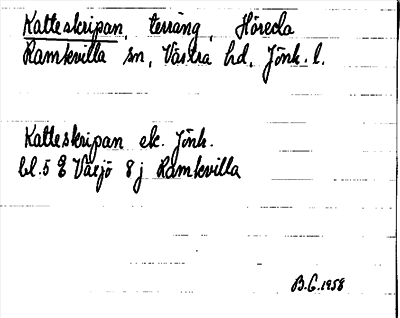 Katteskripan, terräng, Höreda
Ramkvilla sn, Västra hd, Jönk. l.
Katteskripan ek. Jönk.
bl. 5 E Växjö 8 j Ramkvilla
B.G. 1958